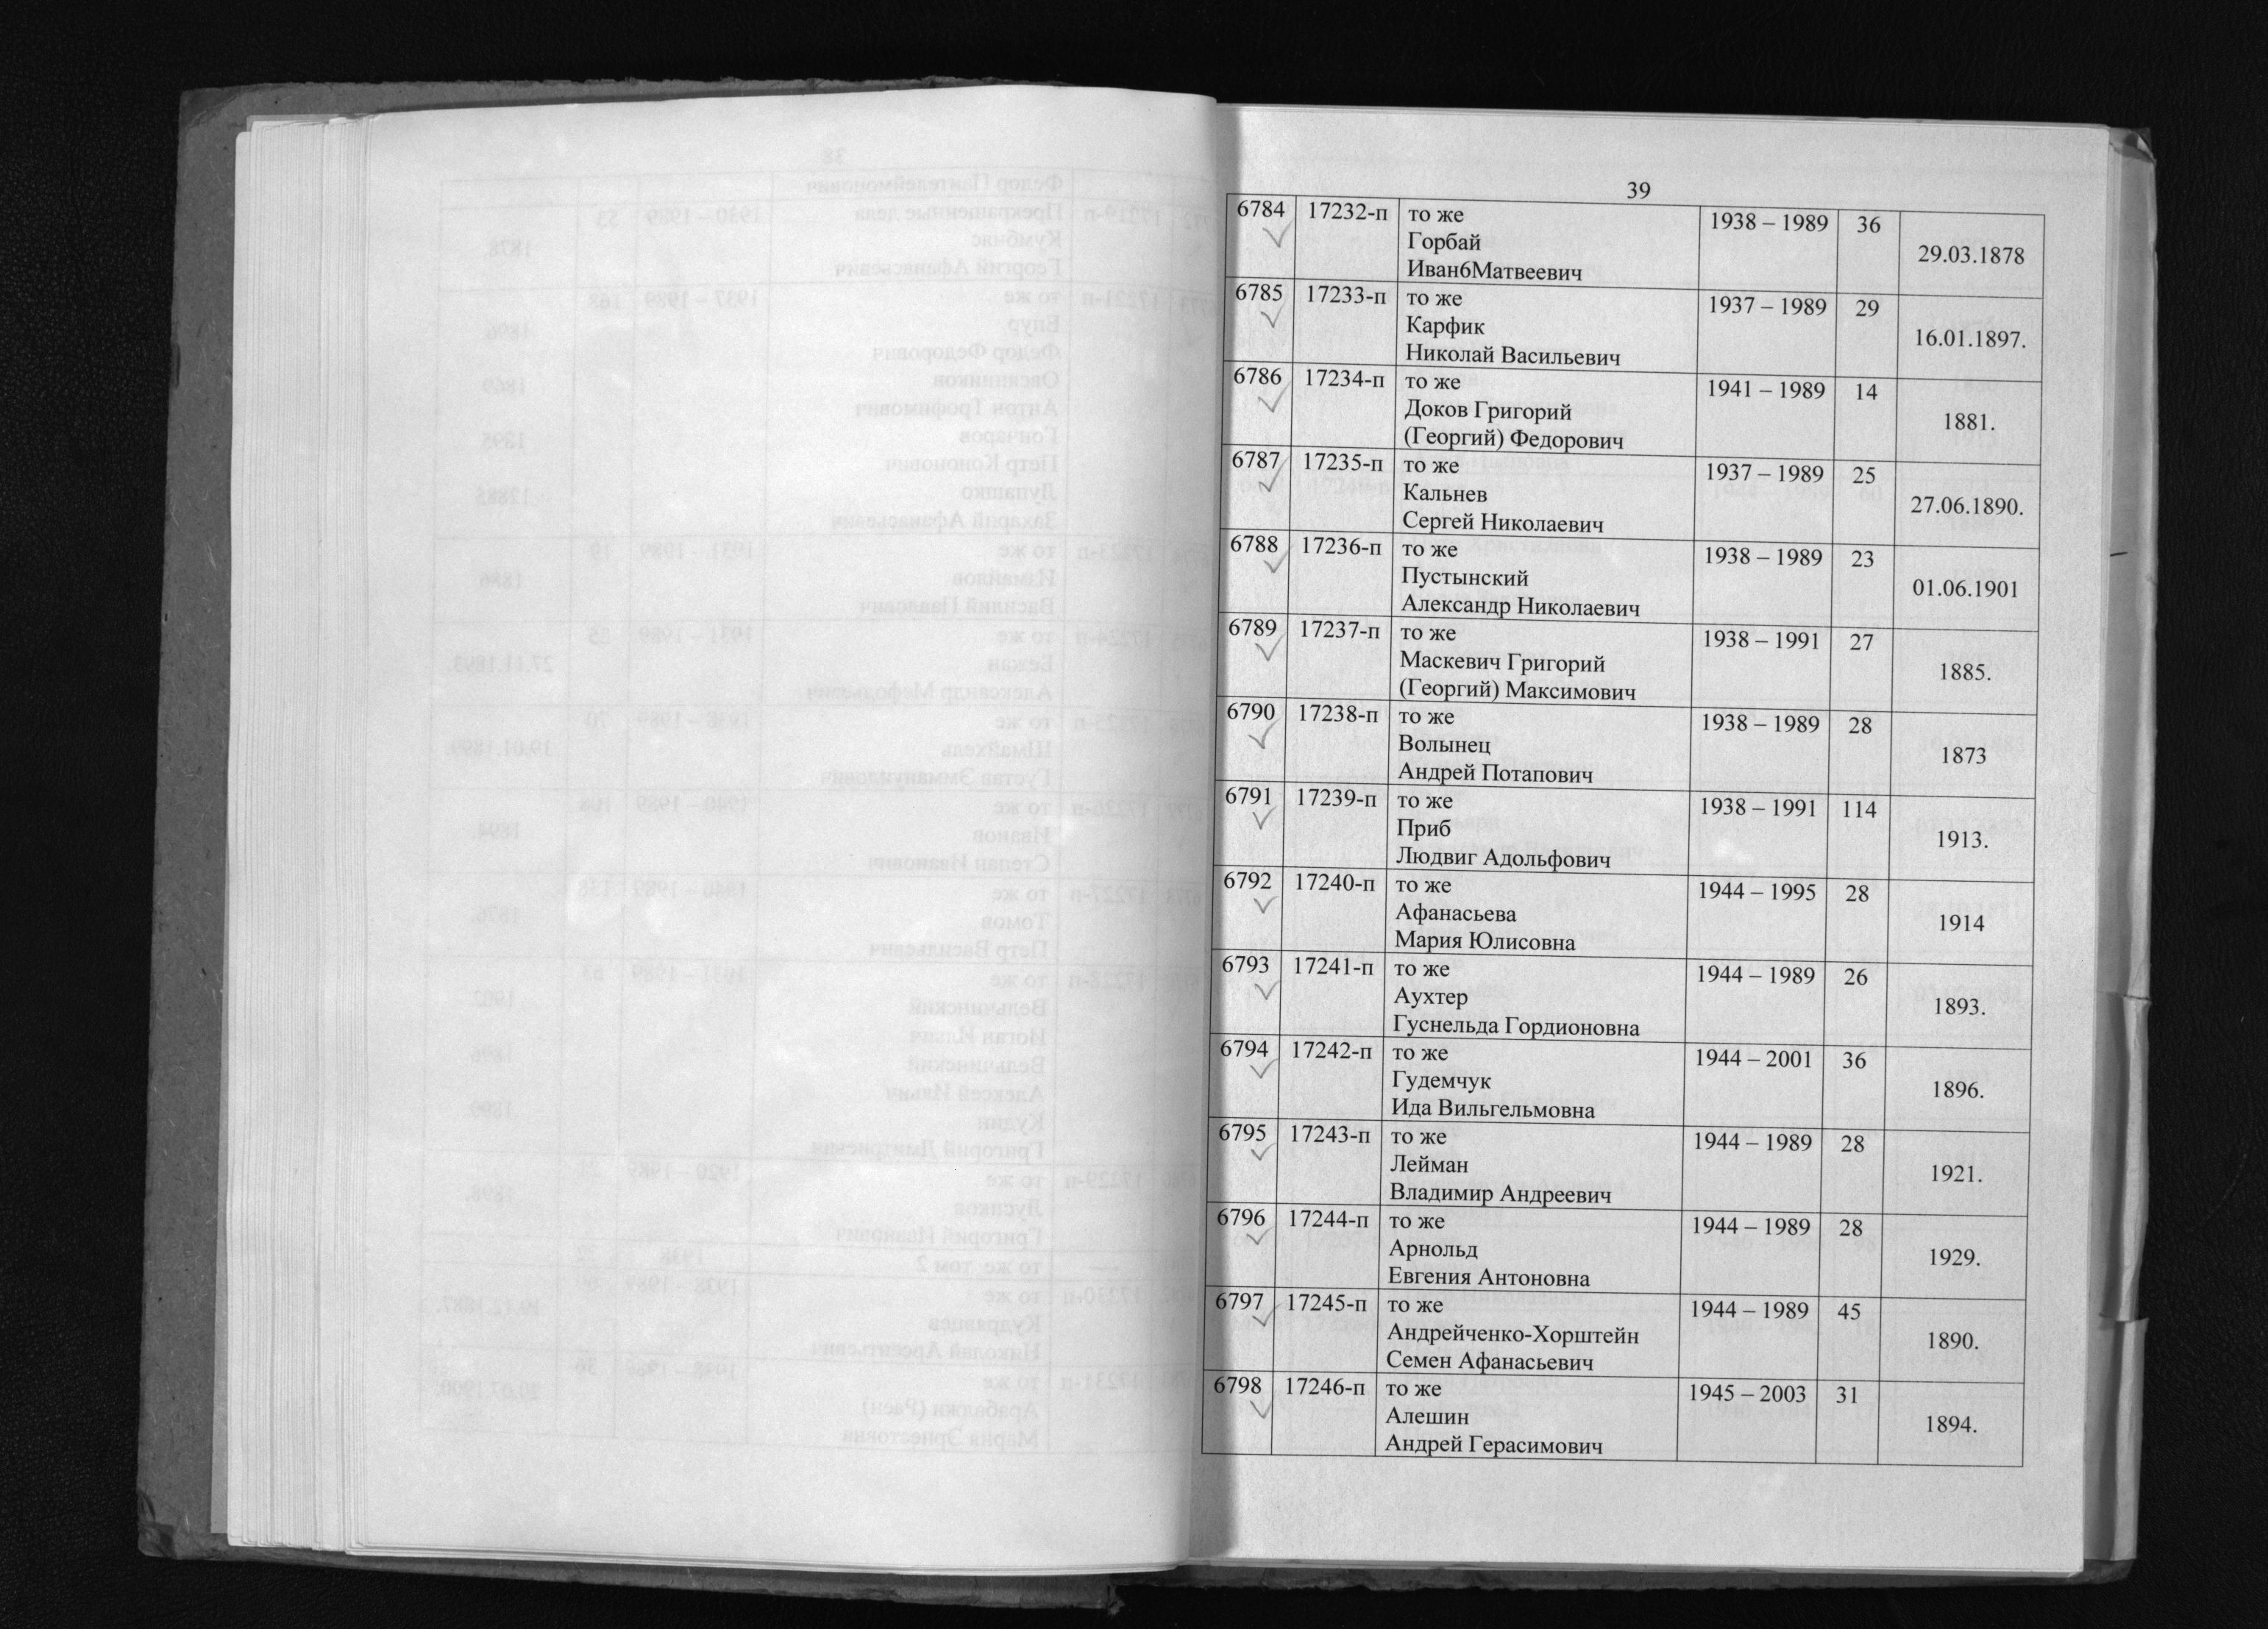 39
6784 17232-п то же 1938 – 1989 36 29.03.1878
Горбай
Иван6Матвеевич
6785 17233-п то же 1937 – 1989 29 16.01.1897.
Карфик
Николай Васильевич
6786 17234-п то же 1941 – 1989 14 1881.
Доков Григорий
(Георгий) Федорович
6787 17235-п то же 1937 – 1989 25 27.06.1890.
Кальнев
Сергей Николаевич
6788 17236-п то же 1938 – 1989 23 01.06.1901
Пустынский
Александр Николаевич
6789 17237-п то же 1938 – 1991 27 1885.
Маскевич Григорий
(Георгий) Максимович
6790 17238-п то же 1938 – 1989 28 1873
Волынец
Андрей Потапович
6791 17239-п то же 1938 – 1991 114 1913.
Приб
Людвиг Адольфович
6792 17240-п то же 1944 – 1995 28 1914
Афанасьева
Мария Юлисовна
6793 17241-п то же 1944 – 1989 26 1893.
Аухтер
Гуснельда Гордионовна
6794 17242-п то же 1944 – 2001 36 1896.
Гудемчук
Ида Вильгельмовна
6795 17243-п то же 1944 – 1989 28 1921.
Лейман
Владимир Андреевич
6796 17244-п то же 1944 – 1989 28 1929.
Арнольд
Евгения Антоновна
6797 17245-п то же 1944 – 1989 45 1890.
Андрейченко-Хорштейн
Семен Афанасьевич
6798 17246-п то же 1945 – 2003 31 1894.
Алешин
Андрей Герасимович